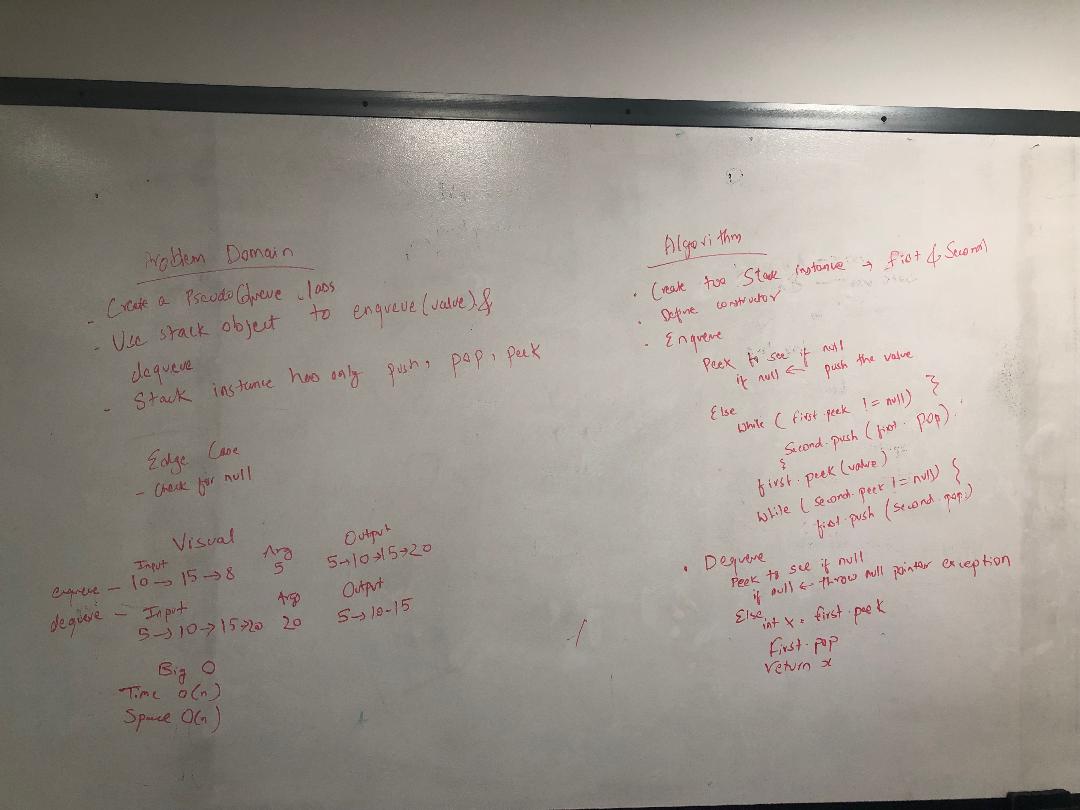 Problem Domain
- Create a PseudoQueue class
- Use stack object to enqueue (value) &
dequeue
- Stack instance has only push, pop, peek
Edge Case
- Check for null
Visual
Input Arg Output
enqueue - 10 → 15 → 8 5 5→10→15→20
Input Args Output
dequeue - 5→10→15→20 20 5→10-15
Big O
Time O(n)
Space O(n)
Algorithm
• Create two Stack instance → first & Second
• Define constructor
• Enqueue
Peek to see if null
if null ← push the value
Else
while (first.peek != null) }
Second.push (first. Pop).
{
first.peek (value)
While (second.peek != null) {
first.push (second.pop)
• Dequeue
Peek to see if null
if null ← throw null pointer exception
Else
int x = first.peek
First.pop
return x